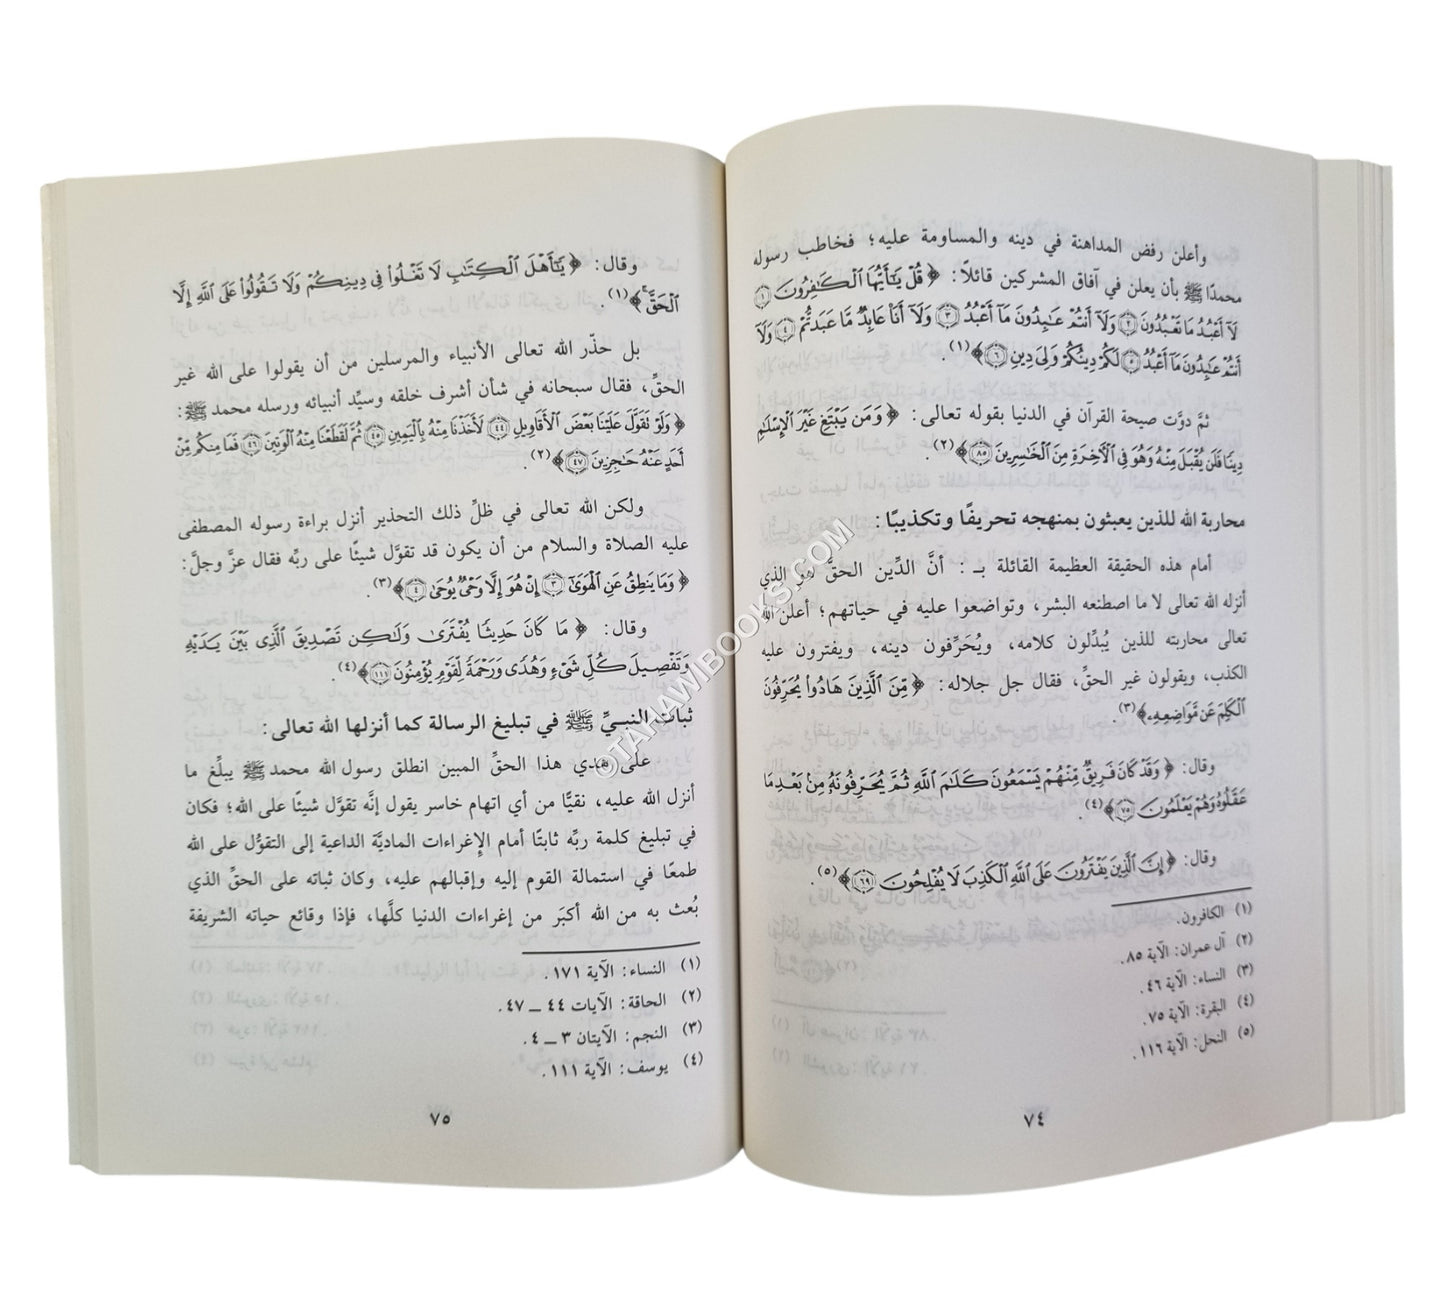 وأعلن رفض المداهنة في دينه والمساومة عليه؛ فخاطب رسوله
محمدًا ﷺ بأن يعلن في آفاق المشركين قائلاً: ﴿ قُلْ يَٰٓأَيُّهَا ٱلْكَٰفِرُونَ ١
لَآ أَعْبُدُ مَا تَعْبُدُونَ ٢ وَلَآ أَنتُمْ عَٰبِدُونَ مَآ أَعْبُدُ ٣ وَلَآ أَنَا۠ عَابِدٌ مَّا عَبَدتُّمْ ٤ وَلَآ
أَنتُمْ عَٰبِدُونَ مَآ أَعْبُدُ ٥ لَكُمْ دِينُكُمْ وَلِىَ دِينِ ٦﴾(١).
ثمَّ دوَّت صيحة القرآن في الدنيا بقوله تعالى: ﴿ وَمَن يَبْتَغِ غَيْرَ ٱلْإِسْلَٰمِ
دِينًا فَلَن يُقْبَلَ مِنْهُ وَهُوَ فِى ٱلْأٓخِرَةِ مِنَ ٱلْخَٰسِرِينَ ٨٥﴾(٢).
محاربة الله للذين يعبثون بمنهجه تحريفًا وتكذيبًا:
أمام هذه الحقيقة العظيمة القائلة بـ: أنَّ الدِّين الحقَّ هو الذي
أنزله الله تعالى لا ما اصطنعه البشر، وتواضعوا عليه في حياتهم؛ أعلن الله
تعالى محاربته للذين يُبدِّلون كلامه، ويُحَرِّفون دينه، ويفترون عليه
الكذب، ويقولون غير الحقِّ، فقال جل جلاله: ﴿ مِّنَ ٱلَّذِينَ هَادُوا۟ يُحَرِّفُونَ
ٱلْكَلِمَ عَن مَّوَاضِعِهِۦ﴾(٣).
وقال: ﴿ وَقَدْ كَانَ فَرِيقٌ مِّنْهُمْ يَسْمَعُونَ كَلَٰمَ ٱللَّهِ ثُمَّ يُحَرِّفُونَهُۥ مِنۢ بَعْدِ مَا
عَقَلُوهُ وَهُمْ يَعْلَمُونَ ٧٥﴾(٤).
وقال: ﴿ إِنَّ ٱلَّذِينَ يَفْتَرُونَ عَلَى ٱللَّهِ ٱلْكَذِبَ لَا يُفْلِحُونَ ٦٩﴾(٥).
(١) الكافرون.
(٢) آل عمران: الآية ٨٥.
(٣) النساء: الآية ٤٦.
(٤) البقرة: الآية ٧٥.
(٥) النحل: الآية ١١٦.
٧٤
وقال: ﴿ يَٰٓأَهْلَ ٱلْكِتَٰبِ لَا تَغْلُوا۟ فِى دِينِكُمْ وَلَا تَقُولُوا۟ عَلَى ٱللَّهِ إِلَّا
ٱلْحَقَّ ۚ﴾(١).
بل حذّر الله تعالى الأنبياء والمرسلين من أن يقولوا على الله غير
الحقِّ، فقال سبحانه في شأن أشرف خلقه وسيِّد أنبيائه ورسله محمد ﷺ:
﴿ وَلَوْ تَقَوَّلَ عَلَيْنَا بَعْضَ ٱلْأَقَاوِيلِ ٤٤ لَأَخَذْنَا مِنْهُ بِٱلْيَمِينِ ٤٥ ثُمَّ لَقَطَعْنَا مِنْهُ ٱلْوَتِينَ ٤٦ فَمَا مِنكُم مِّنْ
أَحَدٍ عَنْهُ حَٰجِزِينَ ٤٧﴾(٢).
ولكن الله تعالى في ظلِّ ذلك التحذير أنزل براءة رسوله المصطفى
عليه الصلاة والسلام من أن يكون قد تقوَّل شيئًا على ربِّه فقال عزَّ وجلَّ:
﴿ وَمَا يَنطِقُ عَنِ ٱلْهَوَىٰٓ ٣ إِنْ هُوَ إِلَّا وَحْىٌ يُوحَىٰ ٤﴾(٣).
وقال: ﴿ مَا كَانَ حَدِيثًا يُفْتَرَىٰ وَلَٰكِن تَصْدِيقَ ٱلَّذِى بَيْنَ يَدَيْهِ
وَتَفْصِيلَ كُلِّ شَىْءٍ وَهُدًى وَرَحْمَةً لِّقَوْمٍ يُؤْمِنُونَ ١١١﴾(٤).
ثبات النبيِّ ﷺ في تبليغ الرسالة كما أنزلها الله تعالى:
على هدي هذا الحقِّ المبين انطلق رسول الله محمد ﷺ يبلِّغ ما
أنزل الله عليه، نقيًّا من أي اتهام خاسر يقول إنَّه تقوَّل شيئًا على الله؛ فكان
في تبليغ كلمة ربِّه ثابتًا أمام الإغراءات الماديَّة الداعية إلى التقوُّل على الله
طمعًا في استمالة القوم إليه وإقبالهم عليه، وكان ثباته على الحقِّ الذي
بُعث به من الله أكبَر من إغراءات الدنيا كلَّها، فإذا وقائع حياته الشريفة
(١) النساء: الآية ١٧١.
(٢) الحاقة: الآيات ٤٤ ــ ٤٧.
(٣) النجم: الآيتان ٣ ــ ٤.
(٤) يوسف: الآية ١١١.
٧٥
©TAHAWIBOOKS.COM